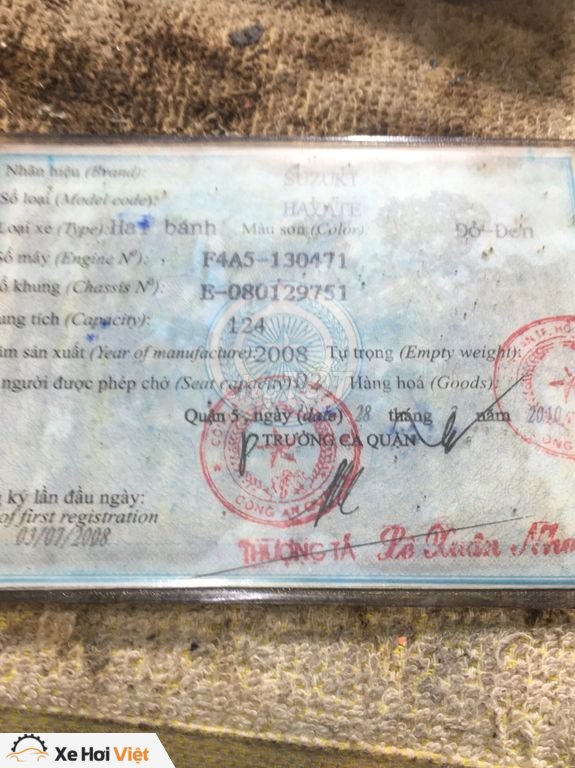 Nhãn hiệu (Brand): SUZUKI
Số loại (Model code): HAYATE
Loại xe (Type): Hai bánh Màu sơn (Color): Đỏ-Đen
Số máy (Engine Nº): F4A5-130471
ố khung (Chassis Nº): E-080129751
ung tích (Capacity): 124
ăm sản xuất (Year of manufacture): 2008 Tự trọng (Empty weight):
người được phép chở (Seat capacity): 02 Hàng hoá (Goods):
Quận 5, ngày (date) 28 tháng năm 2010
TRƯỞNG CA QUẬN
CÔNG AN
ký lần đầu ngày:
of first registration
03/07/2008
THƯỢNG TÁ Lê Xuân
Xe Hơi Việt